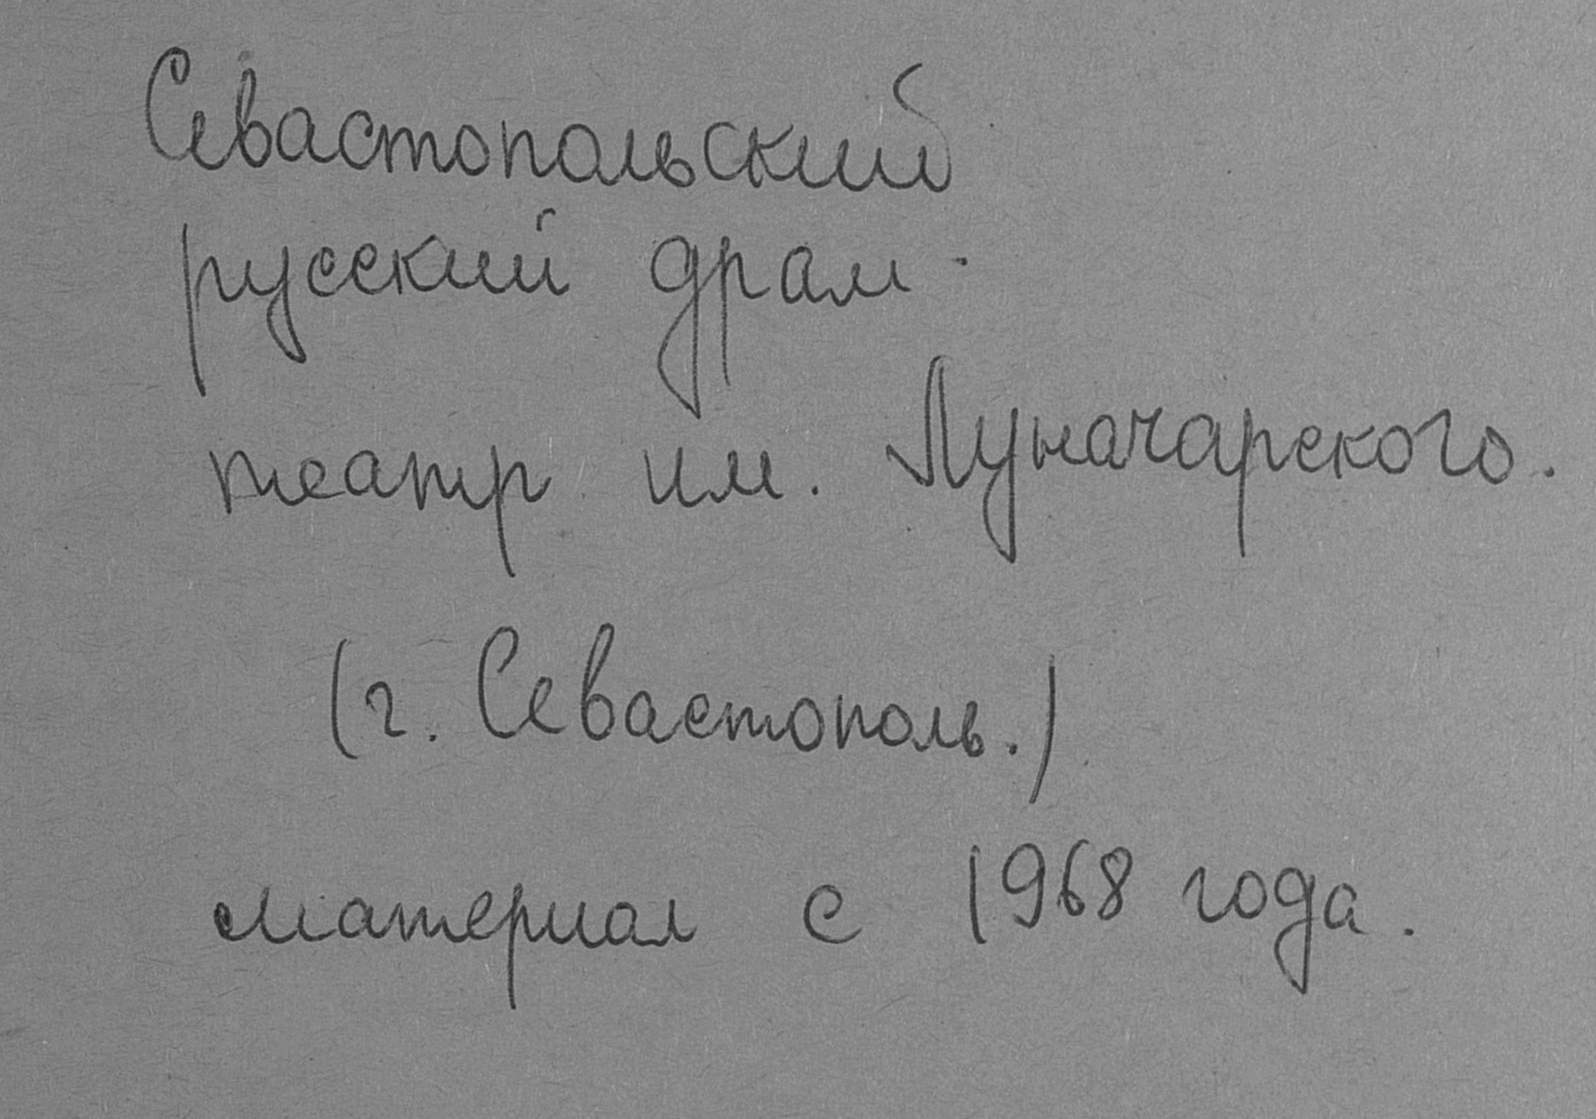 Севастопольский
русский драм.
театр им. Луначарского.
(г. Севастополь.)
материал с 1968 года.